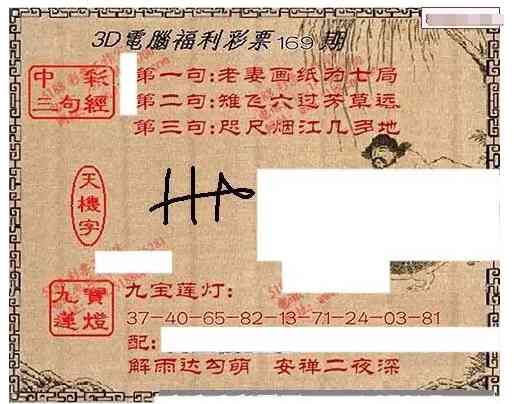 3D電腦福利彩票169期
中彩
三句經
第一句:老妻画纸为七局
第二句:雉飞六过芳草远
第三句:咫尺烟江几多地
天機字
九寶
蓮燈
九宝莲灯:
37-40-65-82-13-71-24-03-81
配:
解雨达勾萌 安禅二夜深